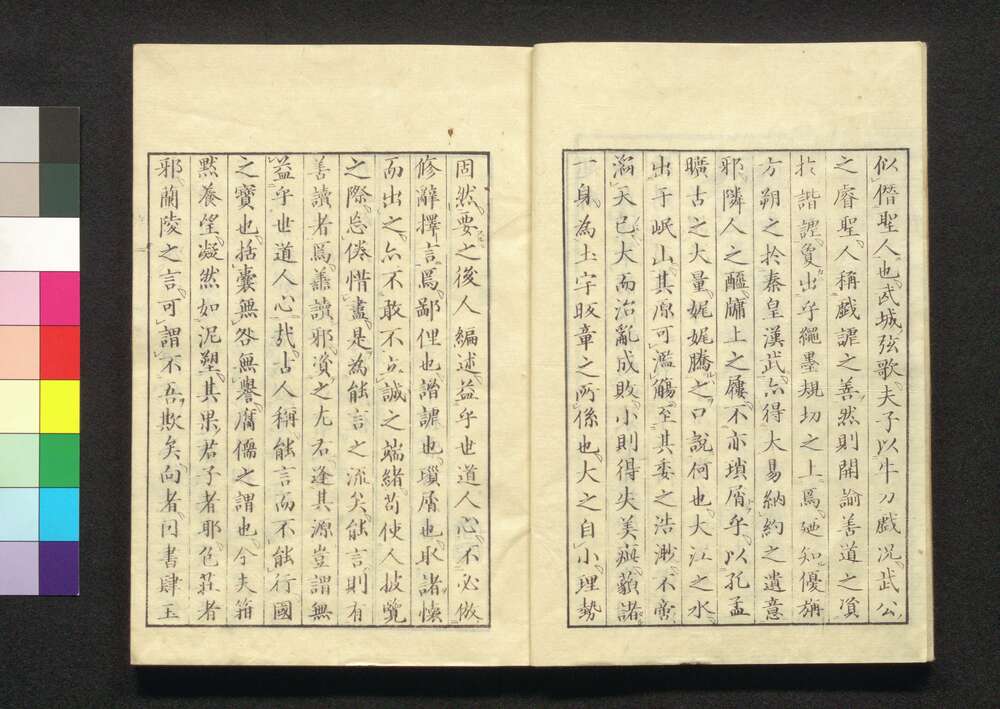 似僭聖人也武城弦歌夫子以牛刀戯况武公
之睿聖人稱戯謔之善然則開諭善道之㑒
於諧謔夐出乎繩墨規切之上焉廼知優旃
方朔之於秦皇漢武亦得大易納約之遺意
邪隣人之醯牖上之屨不亦瑣屑乎以孔孟
曠古之大量娓娓騰之口說何也大江之水
出于岷山其源可濫觴至其委之浩渺不啻
滔天已大而治亂成敗小則得失美疵藐諸
一身為土宇昄章之所係也大之自小理勢
固然要之後人編述益乎世道人心不必倣
修辭擇言為鄙俚也謔謔也瑣屑也取諸懐
而出之亦不敢不立誠之端緒苟使人披覽
之際忘倦惜盡是為能言之流矣能言則有
善讀者焉善讀邪資之左右逢其源豈謂無
益乎世道人心哉古人稱能言而不能行國
之寶也括囊無咎無譽腐儒之謂也今夫箱
黙養望凝然如泥塑其果君子者耶色莊者
邪蘭陵之言可謂不吾欺矣向者閃書肆玉